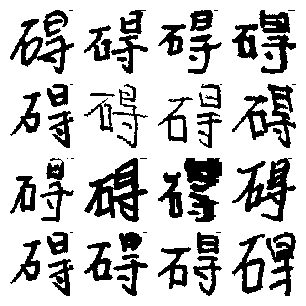 碍碍碍碍
碍碍碍碍
碍碍碍碍
碍碍碍碍